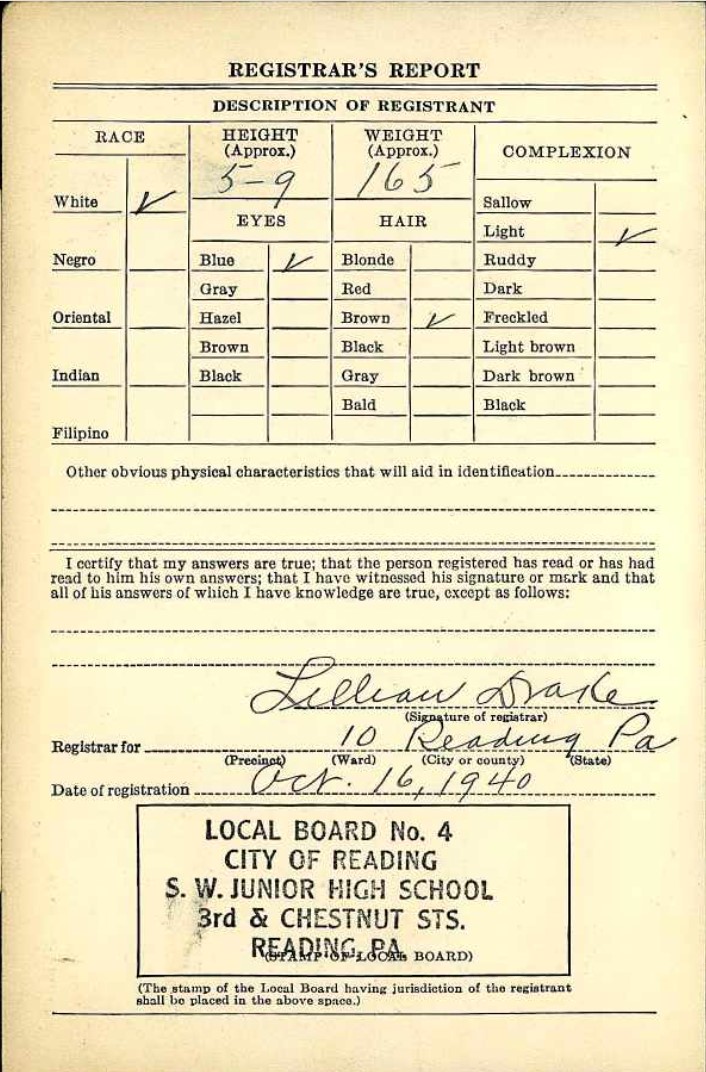 REGISTRAR'S REPORT
DESCRIPTION OF REGISTRANT
RACE HEIGHT (Approx.) WEIGHT (Approx.) COMPLEXION
5-9 165
White ✓
Negro
Oriental
Indian
Filipino
EYES
Blue ✓
Gray
Hazel
Brown
Black
HAIR
Blonde
Red
Brown ✓
Black
Gray
Bald
Sallow
Light ✓
Ruddy
Dark
Freckled
Light brown
Dark brown
Black
Other obvious physical characteristics that will aid in identification
I certify that my answers are true; that the person registered has read or has had
read to him his own answers; that I have witnessed his signature or mark and that
all of his answers of which I have knowledge are true, except as follows:
Lillian Drake
(Signature of registrar)
Registrar for 10 Reading Pa
(Precinct) (Ward) (City or county) (State)
Date of registration Oct. 16, 1940
LOCAL BOARD No. 4
CITY OF READING
S. W. JUNIOR HIGH SCHOOL
3rd & CHESTNUT STS.
READING, PA.
(STAMP OF LOCAL BOARD)
(The stamp of the Local Board having jurisdiction of the registrant
shall be placed in the above space.)